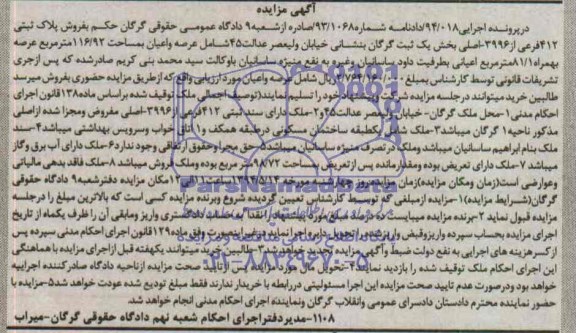 آگهی مزایده
درپرونده اجرایی۹۴/۰۱۸دادنامه شماره۹۳/۱۰۶۸صادره ازشعبه۹ دادگاه عمومی حقوقی گرگان حکم بفروش پلاک ثبتی
۴۱۲فرعی از۳۹۹۶-اصلی بخش یک ثبت گرگان بنشانی خیابان ولیعصر عدالت۴۵شامل عرصه واعیان بمساحت ۱۱۶/۹۲مترمربع عرصه
بهمراه۸۱/۱مترمربع اعیانی بطرفیت داود ساسانیان وغیره به نفع منیژه ساسانیان باوکالت سید محمد بنی کریم صادرشده که پس ازجری
تشریفات قانونی توسط کارشناس بمبلغ ریال شامل عرصه واعیان مورد ارزیابی واقع که ازطریق مزایده حضوری بفروش میرسد
طالبین خرید میتوانند درجلسه مزایده شرکت وپیشنهاد خود را تسلیم نمایند(توصیف اجمالی ملک توقیف شده براساس ماده۱۳۸قانون اجرای
احکام مدنی۱-محل ملک گرگان- خیابان ولیعصر عدالت۴۵و۲-ملک دارای سند ثبتی ۴۱۲فرعی از۳۹۹۶-اصلی مفروض ومجزا شده ازاصلی
مذکور ناحیه۱ گرگان میباشد۳-ملک شامل یکطبقه ساختمان مسکونی درطبقه همکف و۱اتاق خواب وسرویس بهداشتی میباشد۴-سند
ملک بنام ابراهیم ساسانیان میباشد وملک در تصرف منیژه ساسانیان میباشد۵-حق مجرا وحقوق ارتفاقی وجود ندارد۶-ملک دارای آب برق وگاز
میباشد ۷-ملک دارای تعریض بوده ومقدارمانده پس ازتعریض بمساحت ۹۸/۷۲مترمربع بوده وملک مفروش میباشد ۸-ملک فاقد بدهی مالیاتی
وعوارضی است(زمان ومکان مزایده)زمان مزایده روز چهارشنبه مورخه ۱۴ ساعت۱۱الی۱۲مکان مزایده دفترشعبه۹ دادگاه حقوقی
گرگان(شرایط مزایده)۱-مزایده ازمبلغی که توسط کارشناس تعیین گردیده شروع وبرنده مزایده کسی است که بالاترین مبلغ را درجلسه
مزایده قبول نماید ۲-برنده مزایده میبایست ده درصد مبلغ مورد پیشنهاد را نقدا به حساب دادگستری واریز ومابقی آن را ظرف یکماه از تاریخ
اجرای مزایده بحساب سپرده واریزوقبض واریز شده را تحویل دایره اجرا نماید درغیراینصورت وفق ماده۱۲۹قانون اجرای احکام مدنی سپرده پس
از کسرهزینه های اجرایی به نفع دولت ضبط وآگهی مزایده تجدید خواهد شد۳-طالبین خرید میتوانند یکهفته قبل ازاجرای مزایده با هماهنگی
این اجرای احکام ملک توقیف شده را بازدید نمایند۴-تحویل مال مورد مزایده پس از تایید صحت مزایده ازناحیه دادگاه صادرکننده اجراییه
خواهد بود ودرصورت عدم تایید صحت مزایده این اجرا مسئولیتی دررابطه با خریدار ندارند فقط مبلغ تودیع شده عودت خواهد شد۵-مزایده با
حضور نماینده محترم دادستان دادسرای عمومی وانقلاب گرگان ونماینده اجرای احکام مدنی انجام خواهد شد.
۱۱۰۸-مدیردفتراجرای احکام شعبه نهم دادگاه حقوقی گرگان-میراب
ParsNamadData
پایگاه اطلاع رسانی مناقصه و مزایده
۰۲۱-۸۸۳۴۹۶۷۰